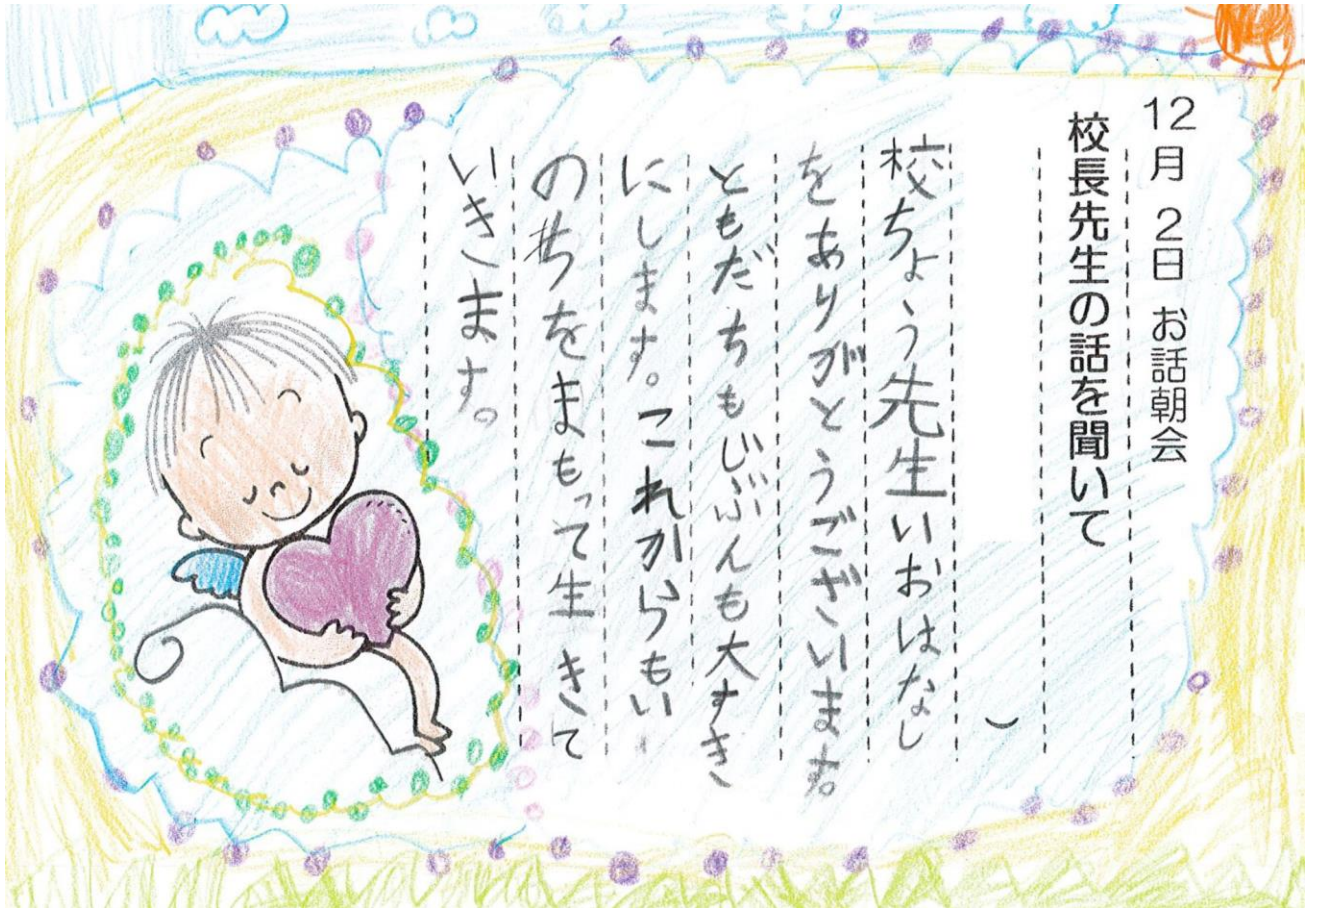 12月 2日 お話朝会
校長先生の話を聞いて
）
校ちょう先生いおはなし
をありがとうございます。
ともだちもじぶんも大すき
にします。これからもい
のちをまもって生きて
いきます。